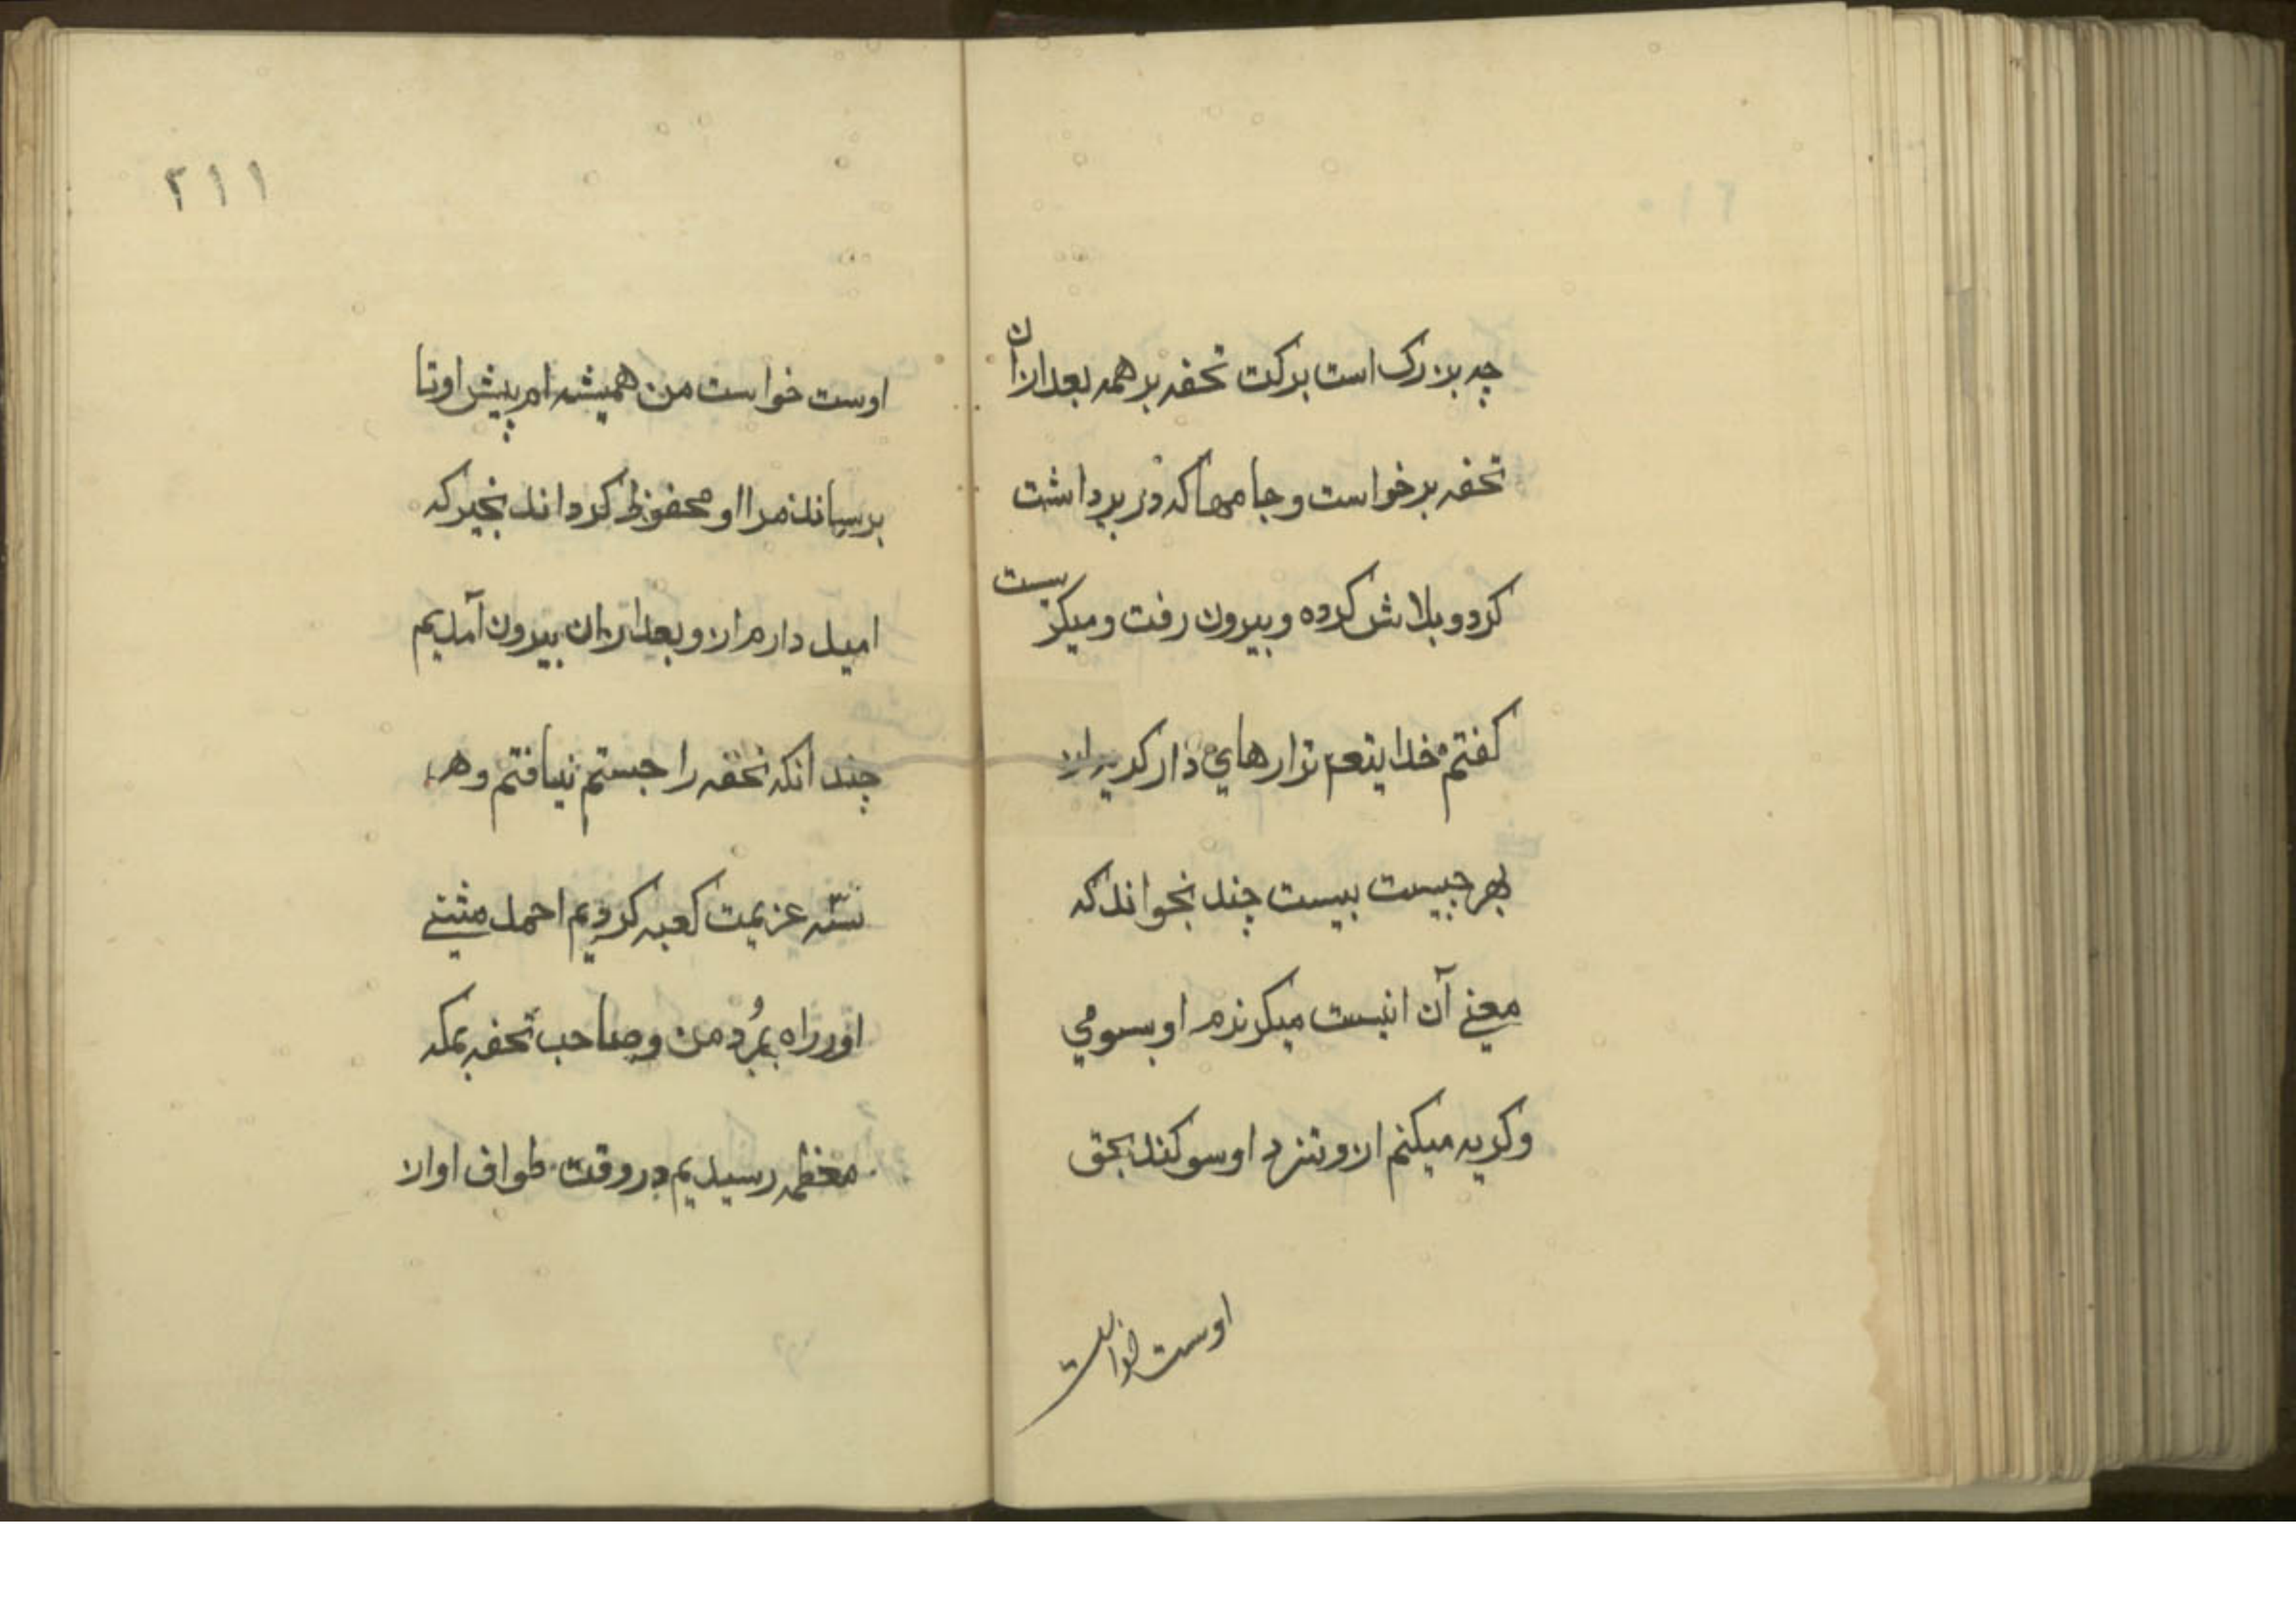 چه بزرک است برکت تحفه بر همه بعد ازان
تحفه برخواست و جامها که در بر داشت
کرد و بلاش کرده و بیرون رفت و میکریست
کفتم خدایتعم ترا رهایي داد کریه
بهر چیست بیست چند بخواند که
معنے آن اینست میکریزم او بسوي
و کریه میکنم ازو بنزد او سوکند بحق
اوست خواست
۲۱۱
اوست خواست من همیشه ام پیش او تا
برسیاند مرا او محفوظ کرداند بخیر که
امید دارم ازو بعد ازان بیرون آمدیم
چند انکه تحفه را جستم نیافتم و هر
سه عزیمت کعبه کردیم احمد مثنے
اورراه بمُرد من و صاحب تحفه بمکه
معظمه رسیدیم در وقت طواف اواز